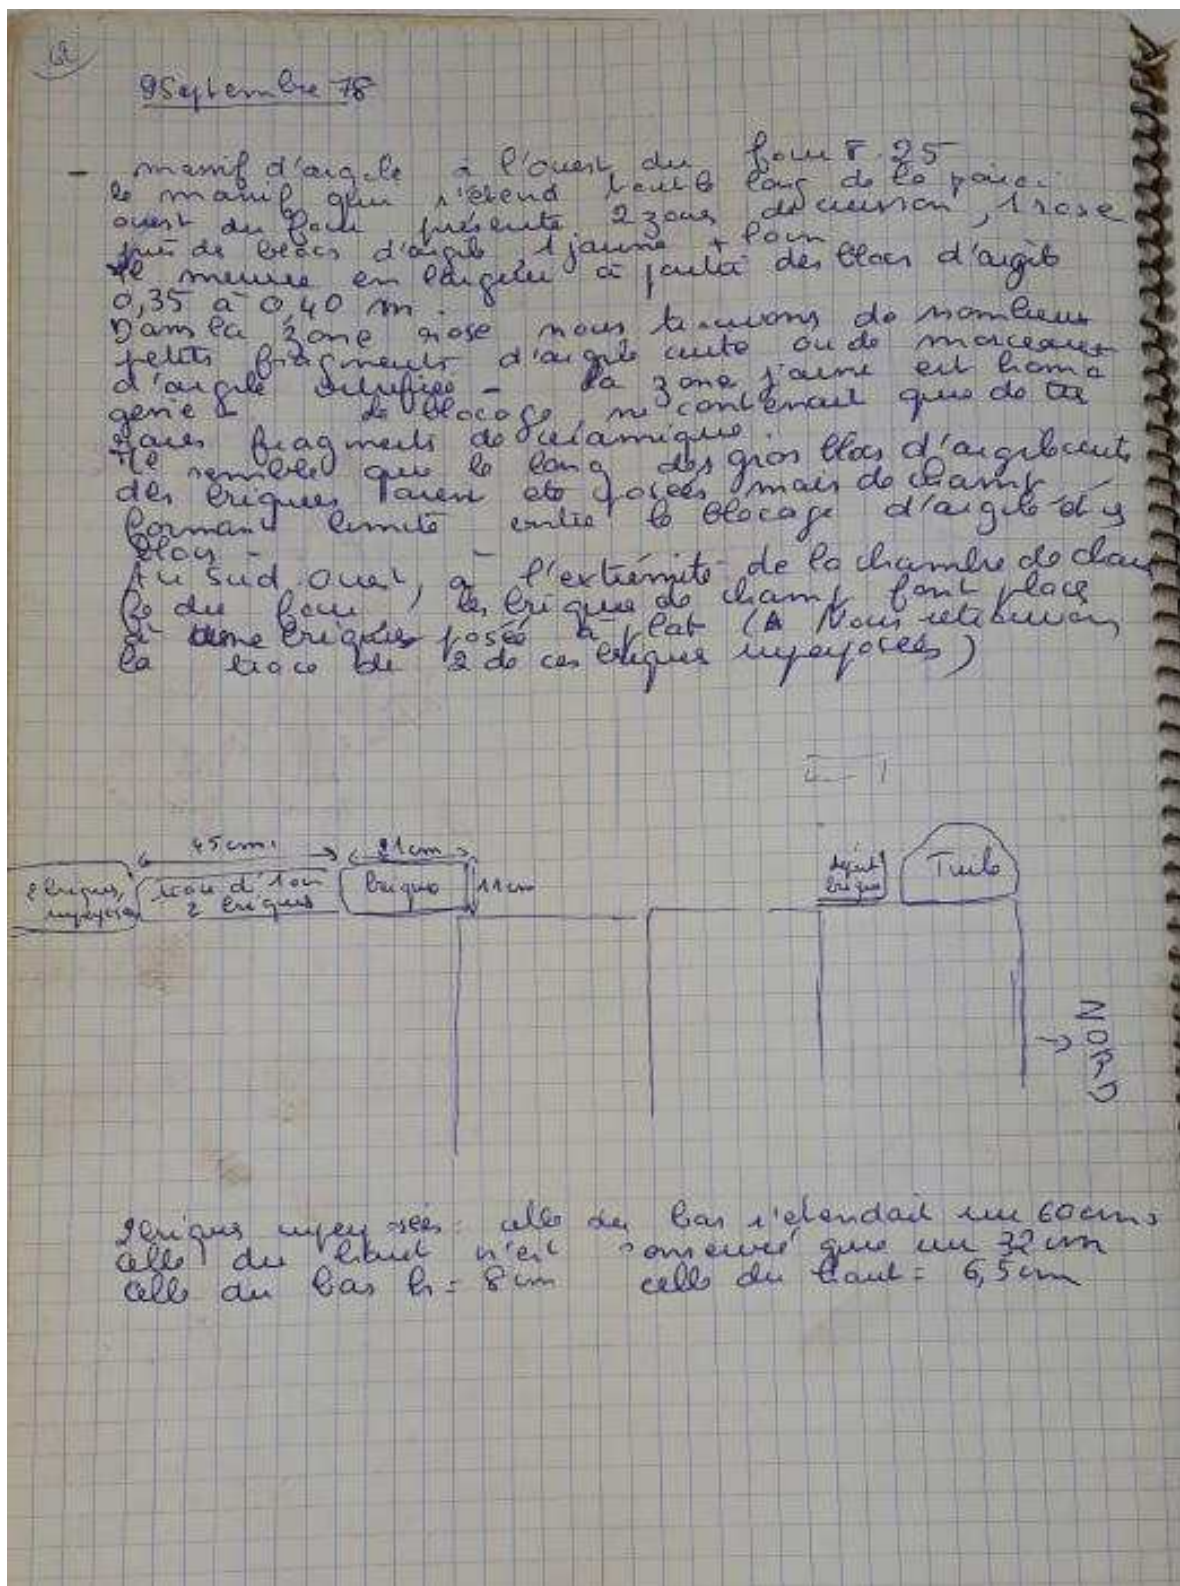 9 Septembre 78
- massif d'argile à l'ouest du four F. 25
le massif qui s'étend tout le long de la paroi
ouest du four présente 2 zones de cuisson, 1 rose
près de blocs d'argile, 1 jaune + loin
Il mesure en largeur à partir des blocs d'argile
0,35 à 0,40 m.
Dans la zone rose nous trouvons de nombreux
petits fragments d'argile cuite ou de morceaux
d'argile vitrifiée - la zone jaune est homo
gène - le blocage ne contenait que de très
rares fragments de céramique.
Il semble que le long des gros blocs d'argile cuite
des briques aient été posées mais de champ
formant limite entre le blocage d'argile et les
blocs -
Au sud ouest, à l'extrémité de la chambre de chau
fe du four, les briques de champ font place
à une briques posée à plat (Nous retrouvons
la trace de 2 de ces briques superposées)
45 cm
21 cm
2 briques
superposées
trace d'1 ou
2 briques
brique
11 cm
brique
Tuile
→ NORD
2 briques superposées : celle du bas s'étendait sur 60 cms
celle du haut n'est conservé que sur 32 cm
celle du bas h = 8 cm celle du haut = 6,5 cm